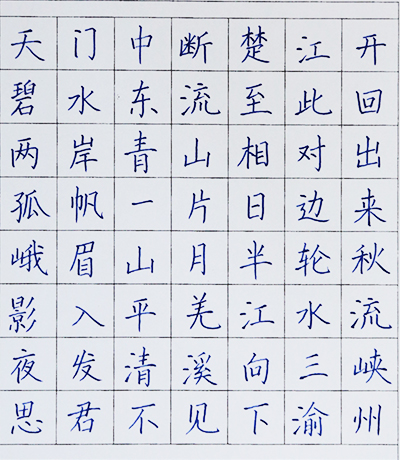 天门中断楚江开
碧水东流至此回
两岸青山相对出
孤帆一片日边来
峨眉山月半轮秋
影入平羌江水流
夜发清溪向三峡
思君不见下渝州